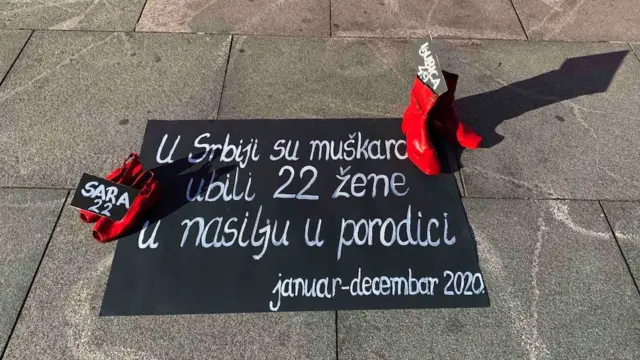 LJUBICA
49
U Srbiji su muškarci
ubili 22 žene
u nasilju u porodici
januar-decembar 2020.
SARA
22